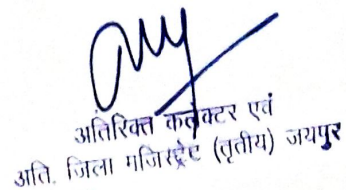 अतिरिक्त कलेक्टर एवं
अति. जिला मजिस्ट्रेट (तृतीय) जयपुर